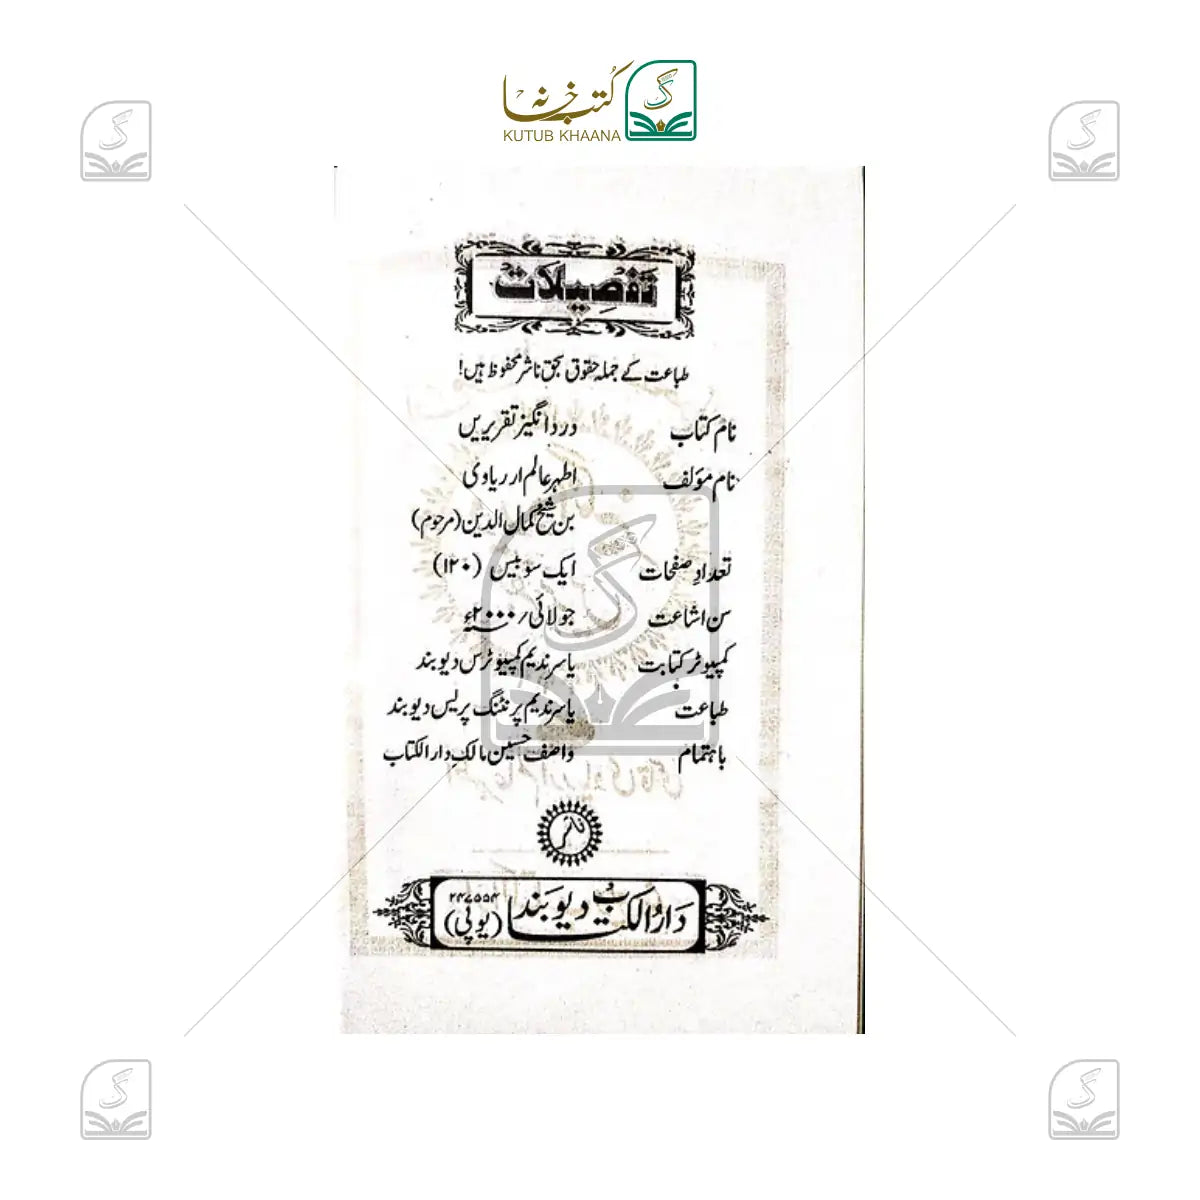 کتب خانہ
KUTUB KHAANA
تفصیلات
طباعت کے جملہ حقوق بحق ناشر محفوظ ہیں!
نام کتاب درد انگیز تقریریں
نام مؤلف اطہر عالم ارریاوی
بن شیخ کمال الدین (مرحوم)
تعداد صفحات ایک سو بیس (۱۲۰)
سن اشاعت جولائی ؍ ۲۰۰۰ء
کمپیوٹر کتابت یاسر ندیم کمپیوٹرس دیوبند
طباعت یاسر ندیم پرنٹنگ پریس دیوبند
باہتمام واصف حسین مالک دارالکتاب
ناشر
دَارُالکتاب دیوبَند (یوپی) ۲۴۷۵۵۴